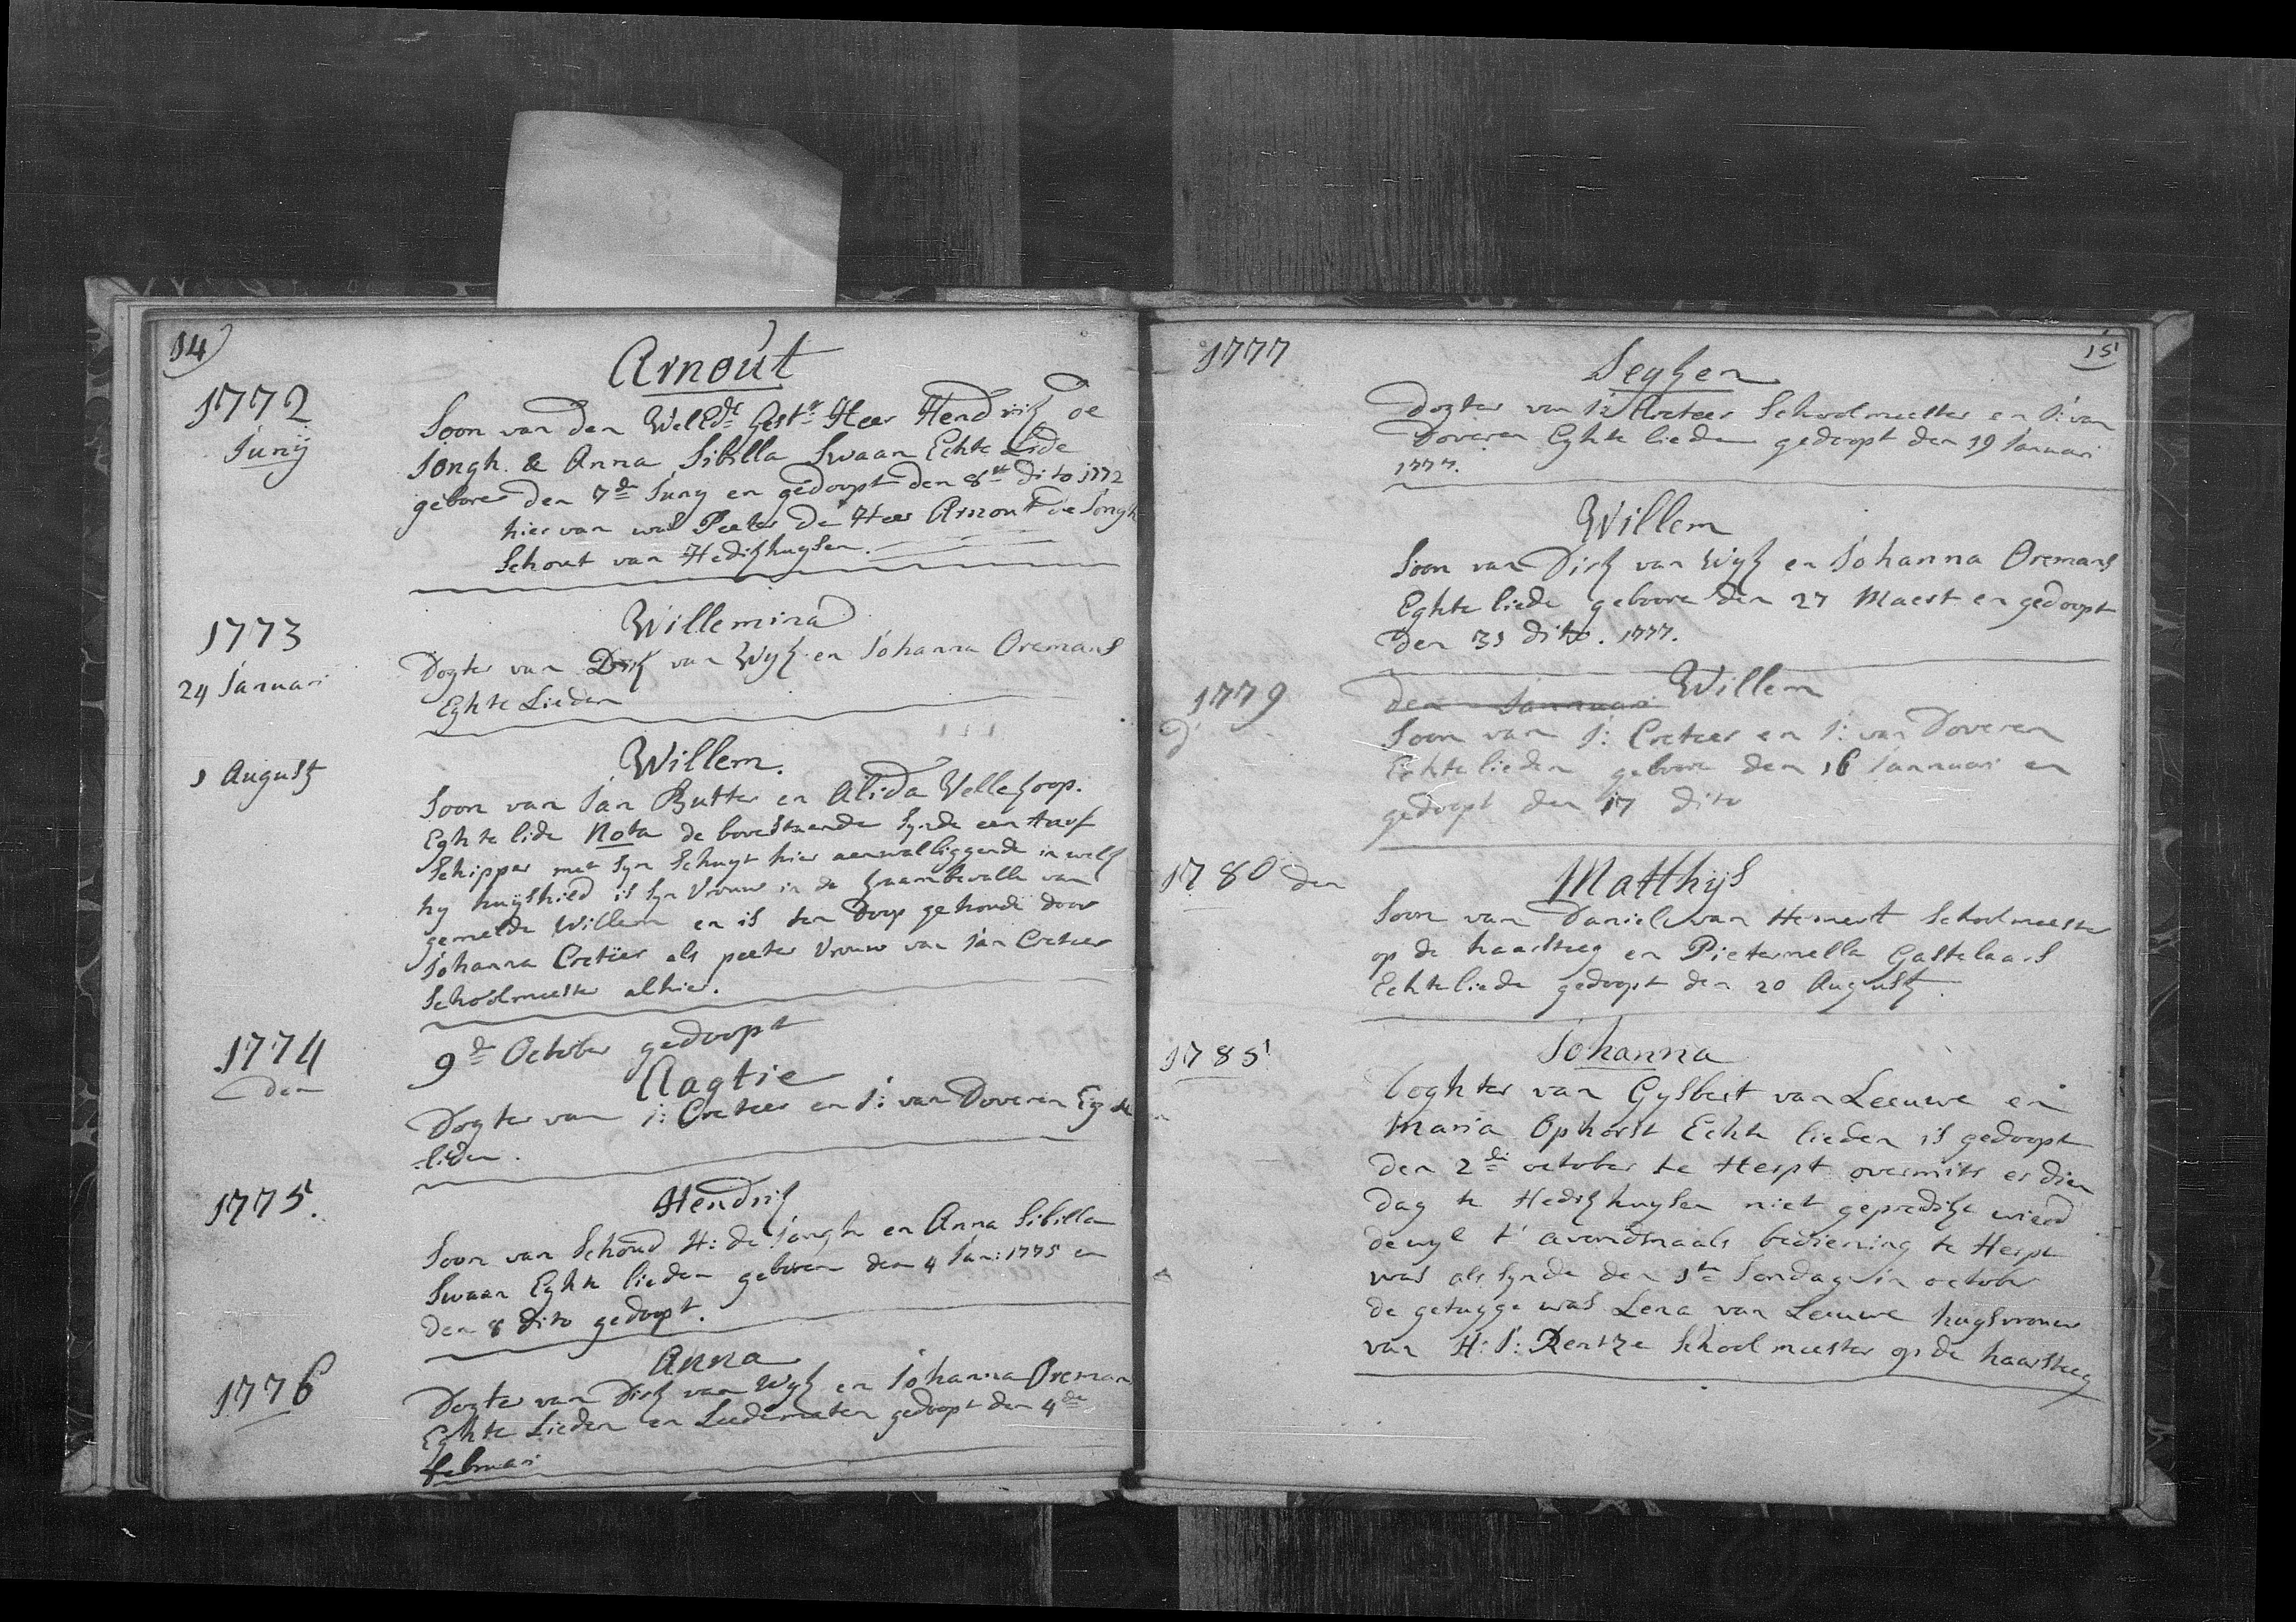 14)
Arnout
1772
Junij
Soon van den WelEd:e Gest:r Heer Hendrik de
Jongh & Anna Sibilla Swaan Echte Lide
gebore den 7de Juny en gedoopt den 8ste dito 1772
hier van was Peeter de Heer Arnout de Jongh
Schout van Hedikhuysen.
1773
24 Januari
Willemina
Dogter van Dirk van Wyk en Johanna Oremans
Eghte Lieden
1 August
Willem.
Soon van Jan Butter en Alida Vellekoop.
Eghte lide Nota de bovestaende synde een
Schipper met syn Schuyt hier aenwalliggende in welk
hy huyshield is syn Vrouw in de kraem bevalle van
gemelde Willem en is ten doop gehoude door
Johanna Cretier als peeter Vrouw van Jan Creteer
Schoolmeester alhier.
1774
den
9de October gedoopt
Aagtie
Dogter van J: Creteer en J: van Doveren Egte
-liden.
1775.
Hendrik
Soon van Schoud H: de Jongh en Anna Sibilla
Swaan Eghte lieden geboren den 4 Jan: 1775 en
den 8 dito gedoopt.
1776
Anna
Dogter van Dirk van Wyk en Johanna Oreman
Eghte Lieden en Leedematen gedoopt den 4de
februari
15
1777
Seyken
Dogter van J: Creteer Schoolmeester en J: van
Doveren Eghte lieden gedoopt den 19 Januari
1777.
Willem
Soon van Dirk van Wyk en Johanna Oremans
Eghte liede geboore den 27 Maert en gedoopt
den 31 dito. 1777.
1779
d
den Jannuari Willem
Soon van J: Creteer en J: van Doveren
Echte lieden gebore den 16 Jannuari en
gedoopt den 17 dito
1780 den
Matthijs
Soon van Daniel van Hemert Schoolmeester
op de haarsteeg en Pieternella Gastelaars
Echte liede gedoopt den 20 August.
1785
Johanna
Doghter van Gysbert van Leeuwe en
Maria Ophorst Echte lieden is gedoopt
den 2de october te Herpt overmits er dien
dag te Hedikhuysen niet gepredikt wierd
dewyl t' avondmaals bediening te Herpt
was als synde den 1ste Sondag in october
de getuyge was Lena van Leeuwe huysvrouw
van H: J: Rentze Schoolmeester op de haarsteeg